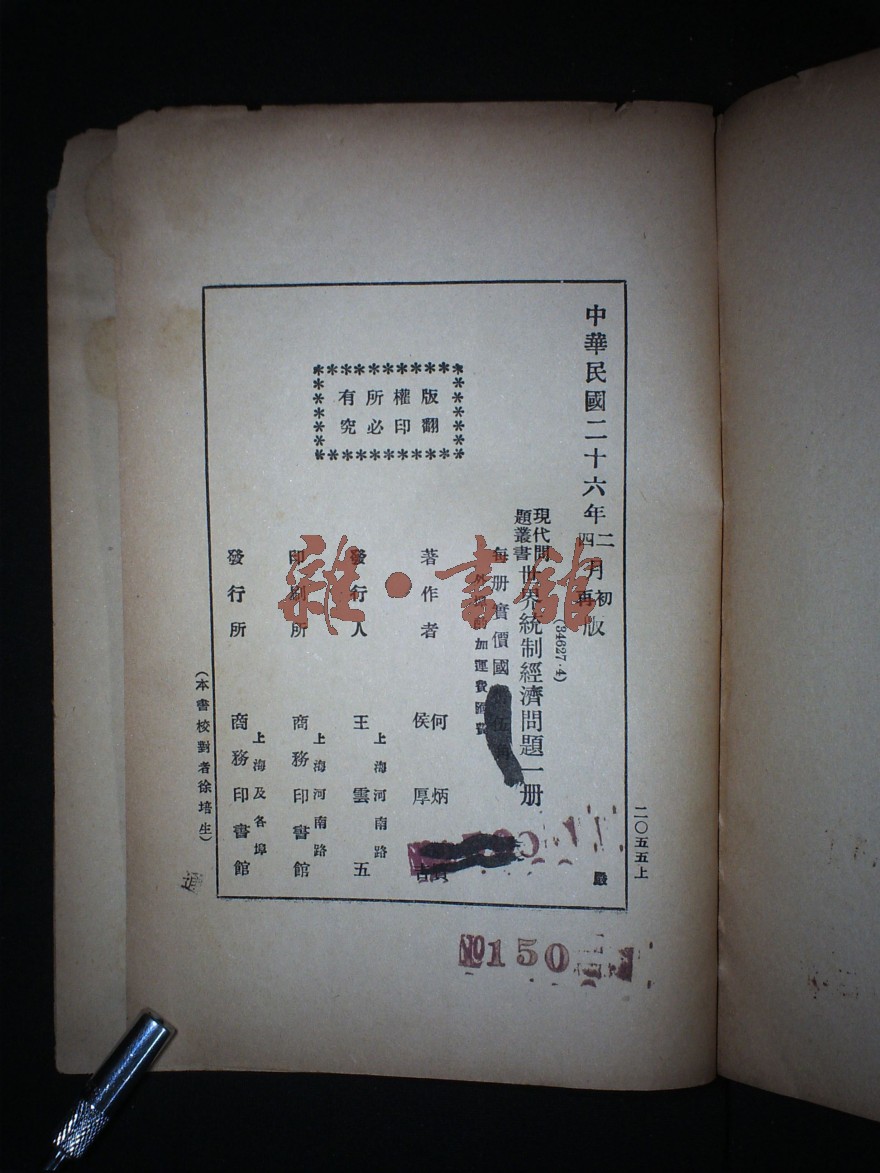 二〇五五上
中華民國二十六年二月初版
四月再版
(34627·4)
現代問題叢書 世界統制經濟問題一册
每册實價國
外埠酌加運費匯費
著作者 何炳 侯厚
發行人 王雲五
上海河南路
印刷所 商務印書館
上海河南路
發行所 商務印書館
上海及各埠
版權所有
翻印必究
(本書校對者徐培生)
嚴
雜·書館
№150